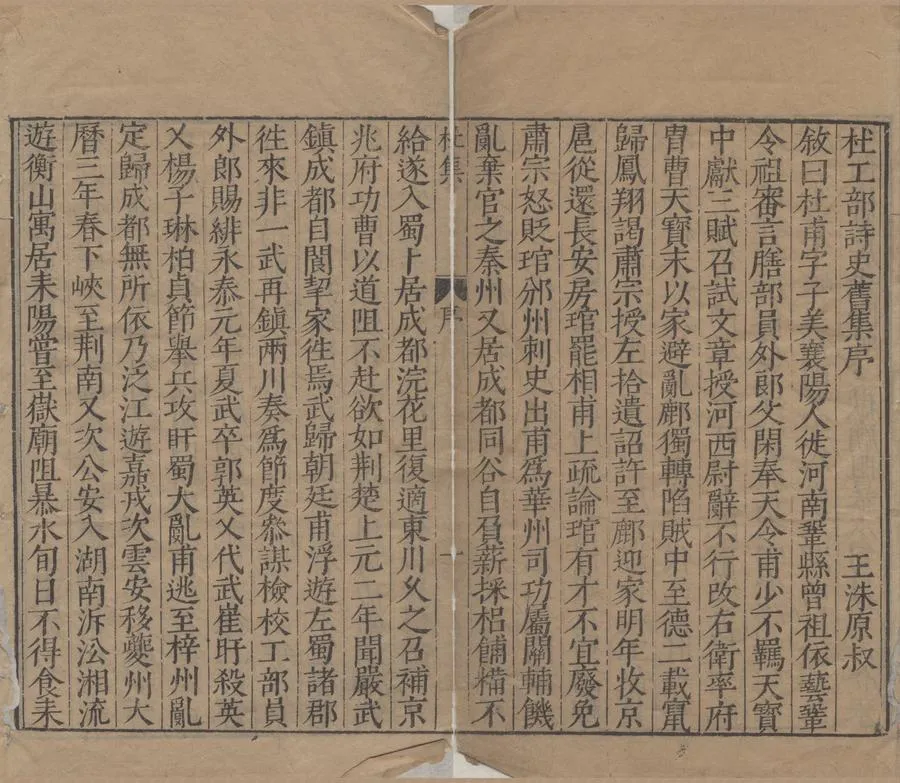 杜工部詩史舊集序
王洙原叔
敘曰杜甫字子美襄陽人徙河南鞏縣曾祖依藝鞏
令祖審言膳部員外郎父閑奉天令甫少不羈天寶
中獻三賦召試文章授河西尉辭不行改右衛率府
胄曹天寶末以家避亂鄜獨轉陷賊中至德二載竄
歸鳳翔謁肅宗授左拾遺詔許至鄜迎家明年收京
扈從還長安房琯罷相甫上疏論琯有才不宜廢免
肅宗怒貶琯邠州刺史出甫爲華州司功屬關輔饑
亂棄官之秦州又居成都同谷自負薪採梠餔糒不
杜集
序
一
給遂入蜀卜居成都浣花里復適東川乆之召補京
兆府功曹以道阻不赴欲如荆楚上元二年聞嚴武
鎮成都自閬挈家徃焉武歸朝廷甫浮遊左蜀諸郡
徃來非一武再鎮兩川奏爲節度叅謀檢校工部員
外郎賜緋永泰元年夏武卒郭英乂代武崔旰殺英
乂楊子琳柏貞節舉兵攻旰蜀大亂甫逃至梓州亂
定歸成都無所依乃泛江遊嘉戎次雲安移夔州大
曆三年春下峽至荆南又次公安入湖南泝沿湘流
遊衡山寓居耒陽嘗至嶽廟阻暴水旬日不得食耒